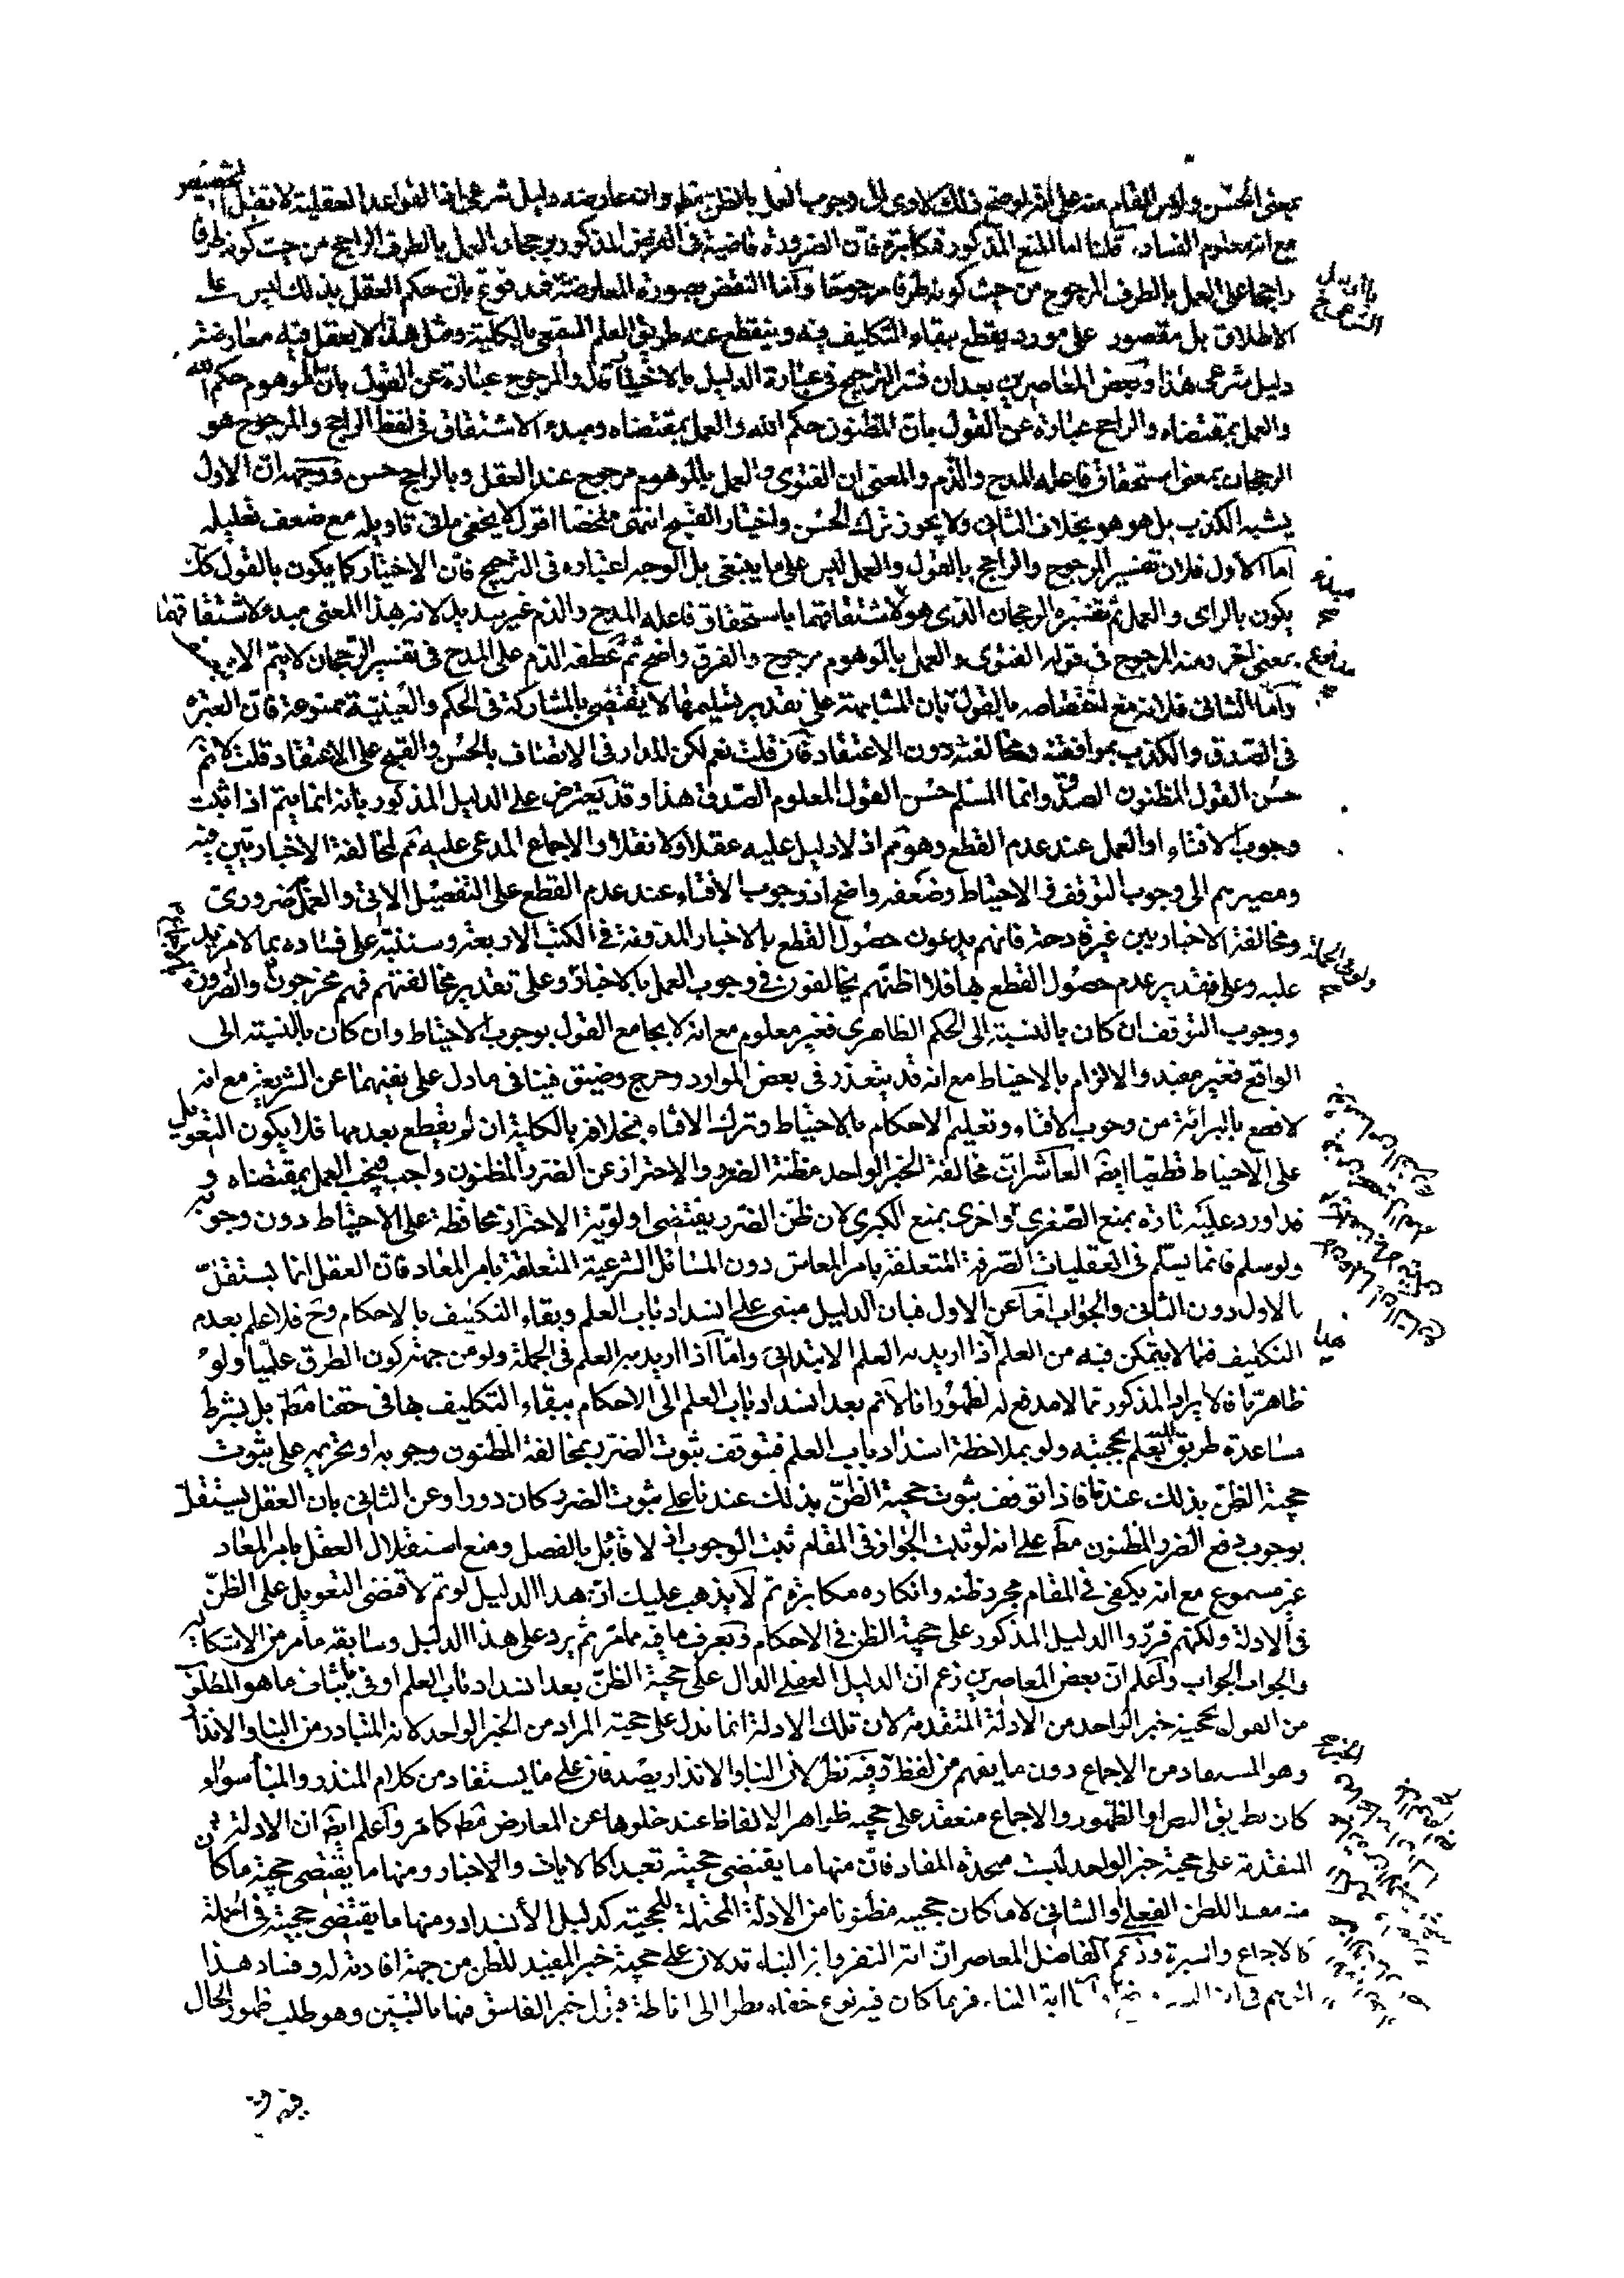 بمعنى الحسن وليس المقام منه على انه لو صح ذلك لادى الى وجوب العمل بالظن مط وان عارضه دليل شرعى اذا القواعد العقلية لا تقبل التخصيص
مع انه معلوم الفساد قلنا اما المنع المذكور فمكابرة فان الضرورة قاضية فى الفرض المذكور برجحان العمل بالطرف الراجح من حيث كونه طرفا
راجحا على العمل بالطرف المرجوح من حيث كونه طرفا مرجوحا واما النقض بصورة المعارضة فمدفوع بان حكم العقل بذلك ليس على
الاطلاق بل مقصور على مورد يقطع ببقاء التكليف فيه وينقطع عنه طريق العلم بالكلية ومثل هذا لا يعقل فيه معارضة
دليل شرعى هذا وبعض المعاصرين بعد ان فسر الترجيح فى عبارة الدليل بالاختيار قال والمرجوح عبارة عن القول بان الموهوم حكم الله
والعمل بمقتضاه والراجح عبارة عن القول بان المظنون حكم الله والعمل بمقتضاه ومبدء الاشتقاق فى لفظ الراجح والمرجوح هو
الرجحان بمعنى استحقاق فاعله المدح والذم والمعنى ان الفتوى والعمل بالموهوم مرجوح عند العقل وبالراجح حسن ووجهه ان الاول
يشبه الكذب بل هو هو بخلاف الثانى ولا يجوز ترك الحسن واختيار القبيح انتهى ملخصا اقول لا يخفى ما فى تاويله مع ضعف تعليله
اما الاول فلان تفسير المرجوح والراجح بالقول والعمل ليس على ما ينبغى بل الوجه اعتباره فى الترجيح فان الاختيار كما يكون بالقول كك
يكون بالراى والعمل ثم تفسيره الرجحان الذى هو لاشتقاقهما باستحقاق فاعله المدح والذم غير سديد لانه هذا المعنى مبدء لاشتقاقهما
بمعنى اخر ومنه المرجوح فى قوله الفتوى والعمل بالموهوم مرجوح والفرق واضح ثم عطفه الذم على المدح فى تفسير الرجحان لا يتم الا
واما الثانى فلانه مع اختصاصه بالقول بان المشابهة على تقدير تسليمها لا يقتضى المشاركة فى الحكم والعينية ممنوعة فان العبرة
فى الصدق والكذب بموافقته ومخالفته دون الاعتقاد فان قلت نعم لكن المدار فى الاتصاف بالحسن والقبح على الاعتقاد قلت لا نم
حسن القول المظنون الصدق وانما المسلم حسن القول المعلوم الصدق هذا وقد يعترض على الدليل المذكور بانه انما يتم اذا ثبت
وجوب الافتاء او العمل عند عدم القطع وهو مم اذ لا دليل عليه عقلا ولا نقلا والاجماع المدعى عليه مم لمخالفة الاخباريين فيه
ومصيرهم الى وجوب التوقف فى الاحتياط وضعفه واضح اذ وجوب الافتاء عند عدم القطع على التفصيل الاتى والعمل ضرورى
ومخالفة الاخباريين غير قادحة فانهم يدعون حصول القطع بالاخبار المدونة فى الكتب الاربعة وسننبه على فساده بما لا مزيد
عليه وعلى تقدير عدم حصول القطع بها فلا اظنهم يخالفون فى وجوب العمل بالاخبار وعلى تقدير مخالفتهم فهم محجوجون والضرورة
ووجوب التوقف ان كان بالنسبة الى الحكم الظاهرى فغير معلوم مع انه لا يجامع القول بوجوب الاحتياط وان كان بالنسبة الى
الواقع فغير مفيد والالزام بالاحتياط مع انه قد يتعذر فى بعض الموارد وحرج وضيق فينافى ما دل على نفيهما عن الشريعة مع انه
لا قطع بالبرائة من وجوب الافتاء وتعليم الاحكام بالاحتياط وترك الافتاء بخلافه بالكلية ان لم يقطع بعدمها فلا يكون التعويل
على الاحتياط قطعيا ايضا العاشر ان مخالفة الخبر الواحد مظنة الضرر والاحتراز عن الضرر المظنون واجب فيجب العمل بمقتضاه و
قد اورد عليه تارة بمنع الصغرى واخرى بمنع الكبرى لان ظن الضرر يقتضى اولوية الاحتراز محافظة على الاحتياط دون وجوبه
ولو سلم فانما يسلم فى العقليات الصرفة المتعلقة بامر المعاش دون المسائل الشرعية المتعلقة بامر المعاد فان العقل انما يستقل
بالاول دون الثانى والجواب اما عن الاول فبان الدليل مبنى على انسداد باب العلم وبقاء التكليف بالاحكام وح فلا علم بعدم
التكليف فيما لا يتمكن فيه من العلم اذا اريد به العلم الابتدائى واما اذا اريد به العلم فى الجملة ولو من جهة كون الطرق علميا ولو
ظاهريا فالايراد المذكور مما لا مدفع له لظهور انا لا نم بعد انسداد باب العلم الى الاحكام ببقاء التكليف بها فى حقنا مط بل بشرط
مساعدة طريق العلم بحجيته ولو بملاحظة انسداد باب العلم فيتوقف ثبوت الضرر بمخالفة المظنون وجوبه او تحريمه على ثبوت
حجية الظن بذلك عندنا فاذا توقف ثبوت حجية الظن بذلك عندنا على ثبوت الضرر كان دورا وعن الثانى بان العقل يستقل
بوجوب دفع الضرر المظنون مط على انه لو ثبت الجواز فى المقام ثبت الوجوب اذ لا قائل بالفصل ومنع استقلال العقل بامر المعاد
غير مسموع مع انه يكفى فى المقام مجرد ظنه وانكاره مكابرة ثم لا يذهب عليك ان هذا الدليل لو تم لاقتضى التعويل على الظن
فى الادلة ولكنهم قرروا الدليل المذكور على حجية الظن فى الاحكام ويعرف ما فيه مما مر ثم يرد على هذا الدليل وسابقه ما مر من الاشكال
والجواب الجواب واعلم ان بعض المعاصرين زعم ان الدليل العقلى الدال على حجية الظن بعد انسداد باب العلم اوفى باثبات ما هو المطلوب
من القول بحجية خبر الواحد من الادلة المتقدمة لان تلك الادلة انما تدل على حجية المراد من الخبر الواحد لانه المتبادر من النبا والانذار
وهو المستفاد من الاجماع دون ما يفهم من لفظه وفيه نظر لان النبا والانذار يصدقان على ما يستفاد من كلام المنذر والمنبأ سواء
كان بطريق النص او الظهور والاجماع منعقد على حجية ظواهر الالفاظ عند خلوها عن المعارض مط كما مر واعلم ايضا ان الادلة
المتقدمة على حجية خبر الواحد ليست متحدة المفاد فان منها ما يقتضى حجيته تعبدا كالايات والاخبار ومنها ما يقتضى حجية ما كان
منه مفيدا للظن الفعلى او الشانى لا ما كان حجيته مظنونا من الادلة المحتملة للحجية كدليل الانسداد ومنها ما يقتضى حجيته فى الجملة
كالاجماع والسيرة وزعم الفاضل المعاصر ان اية النفر واية النباء تدلان على حجية خبر المفيد للظن من جهة افادته له وفساد هذا
اية النباء فربما كان فيه نوع خفاء نظرا الى اناطة قبول خبر الفاسق فيها بالتبين وهو طلب ظهور الحال